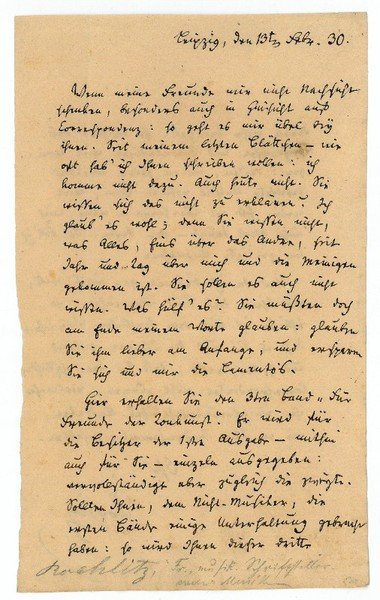 Leipzig, den 13ten Febr. 30.
Wenn meine Freunde mir nicht Nachsicht
schenken, besonders auch in Hinsicht auf
Correspondenz: so geht es mir übel bey
ihnen. Seit meinem letzten Blättchen – wie
oft hab' ich Ihnen schreiben wollen: ich
komme nicht dazu. Auch heute nicht. Sie
wissen sich das nicht zu erklären? Ich
glaub' es wohl; denn Sie wissen nicht,
was Alles, Eins über das Andere, seit
Jahr und Tag über mich und die Meinigen
gekommen ist. Sie sollen es auch nicht
wissen. Was hülf' es? Sie müßten doch
am Ende meinem Worte glauben: glauben
Sie ihm lieber am Anfange, und ersparen
Sie sich und mir die Lamentos.
Hier erhalten Sie den 3ten Band „Für
Freunde der Tonkunst". Er wird für
die Besitzer der 1sten Ausgabe – mithin
auch für Sie – einzeln ausgegeben:
vervollständigt aber zugleich die zweyte.
Sollten Ihnen, dem Nicht-Musiker, die
ersten Bände einige Unterhaltung gebracht
haben: so wird Ihnen dieser dritte
Rochlitz, Fr., musik. Schriftsteller